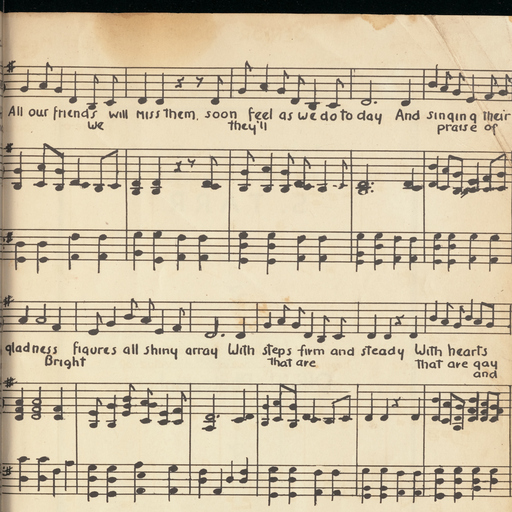 All our friends will miss them, soon feel as we do to day And singing their
we they'll praise of
gladness figures all shiny array With steps firm and steady With hearts
Bright that are that are gay
and